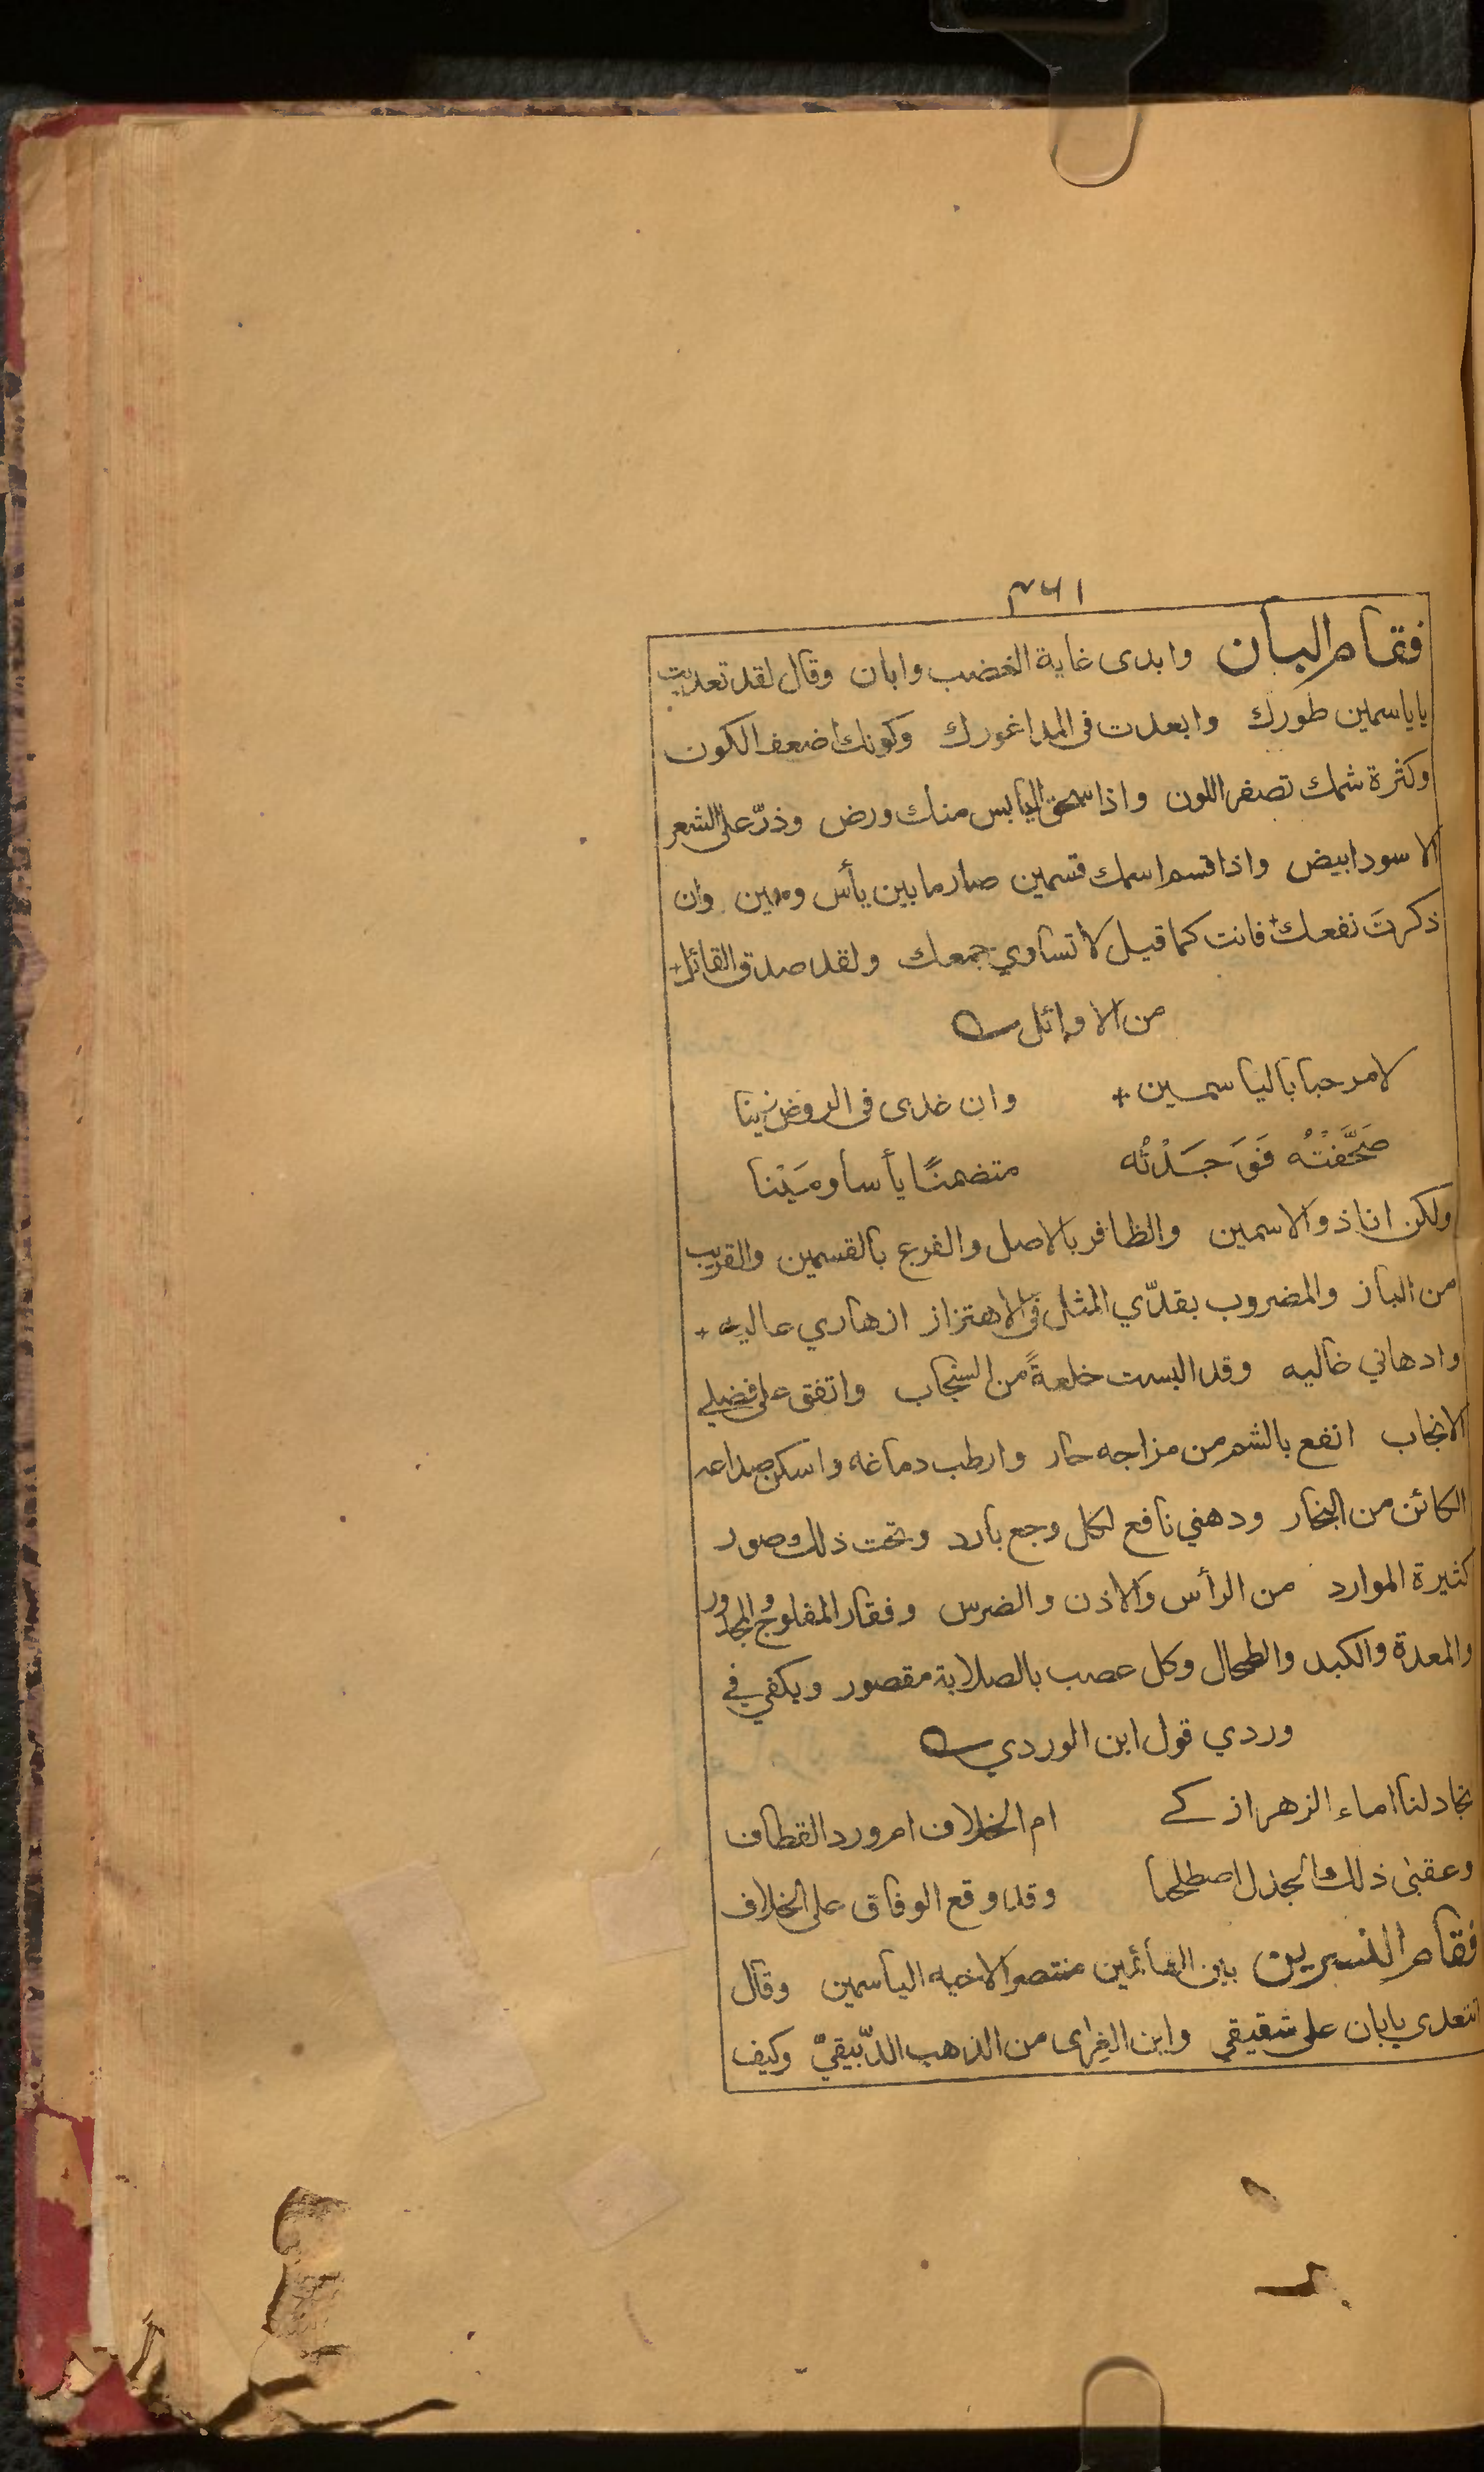 ١٤٣
فقام البان وابدى غاية الغضب وابان وقال لقد تعديت
يا ياسمين طورك وابعدت فى المدا غورك وكونك اضعف الكون
وكثرة شمك تصفر اللون واذا سحق اليابس منك ورض وذرّ على الشعر
الاسود ابيض واذا قسم اسمك قسمين صار ما بين يأس ومين وان
ذكرتَ نفعك فانت كما قيل لا تساوي جمعك ولقد صدق القائل
من الاوائل
لا مرحبا بالياسمين وان غدى فى الروض زينا
صَحَّفْتُه فَوَجَدْتُه متضمنًا يأسا ومَيْنا
ولكن انا ذو الاسمين والظافر بالاصل والفرع بالقسمين والقريب
من الباز والمضروب بقدّي المثل فى الاهتزاز ازهاري عاليه
وادهاني غاليه وقد البست خلعةً من السنجاب واتفق على فضلي
الانجاب انفع بالشم من مزاجه حار وارطب دماغه واسكن صداعه
الكائن من البخار ودهني نافع لكل وجع بارد وتحت ذلك صور
كثيرة الموارد من الرأس والاذن والضرس وفقار المفلوج والمجدور
والمعدة والكبد والطحال وكل عصب بالصلابة مقصور ويكفي في
وردي قول ابن الوردي
تجادلنا اماء الزهر ازكے ام الخلاف ام ورد القطاف
وعقبى ذلك الجدل اصطلحا وقد وقع الوفاق على الخلاف
فقام النسرين بين القائمين منتصرا لاخيه الياسمين وقال
اتتعدى يا بان على شقيقي واين الفِرى من الذهب الدّبيقيّ وكيف